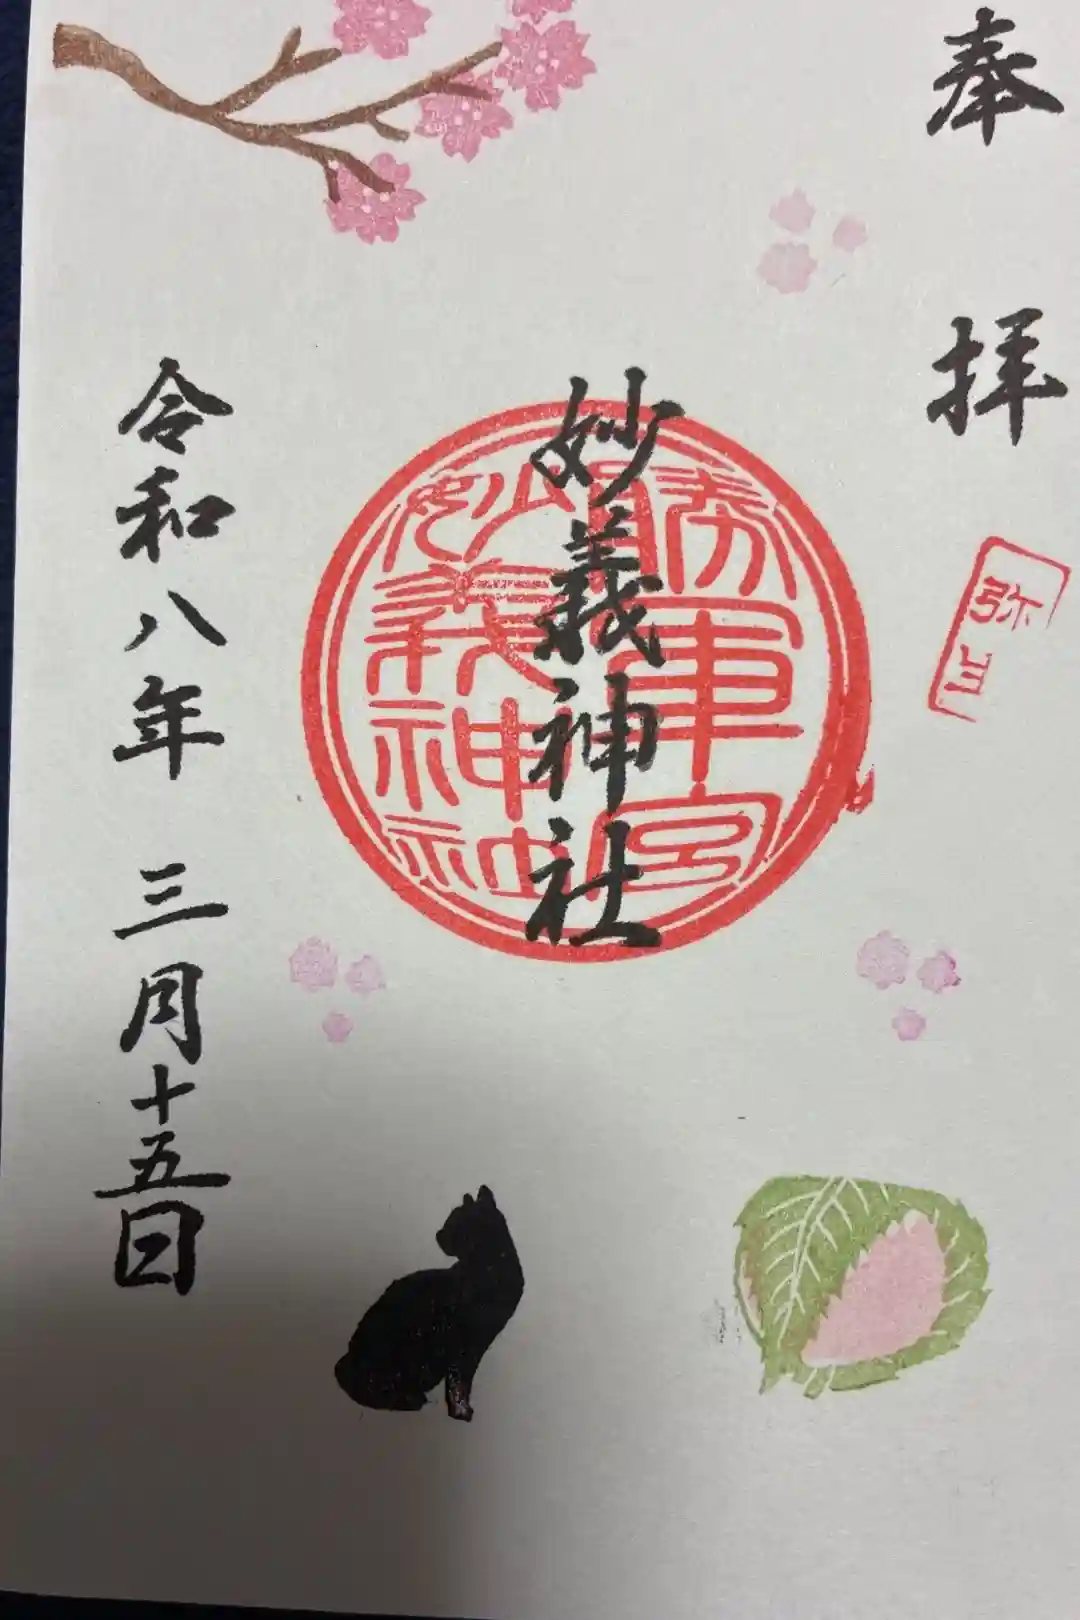 奉拝
弥生
妙義神社
勝軍宮
妙義神社
令和八年 三月十五日